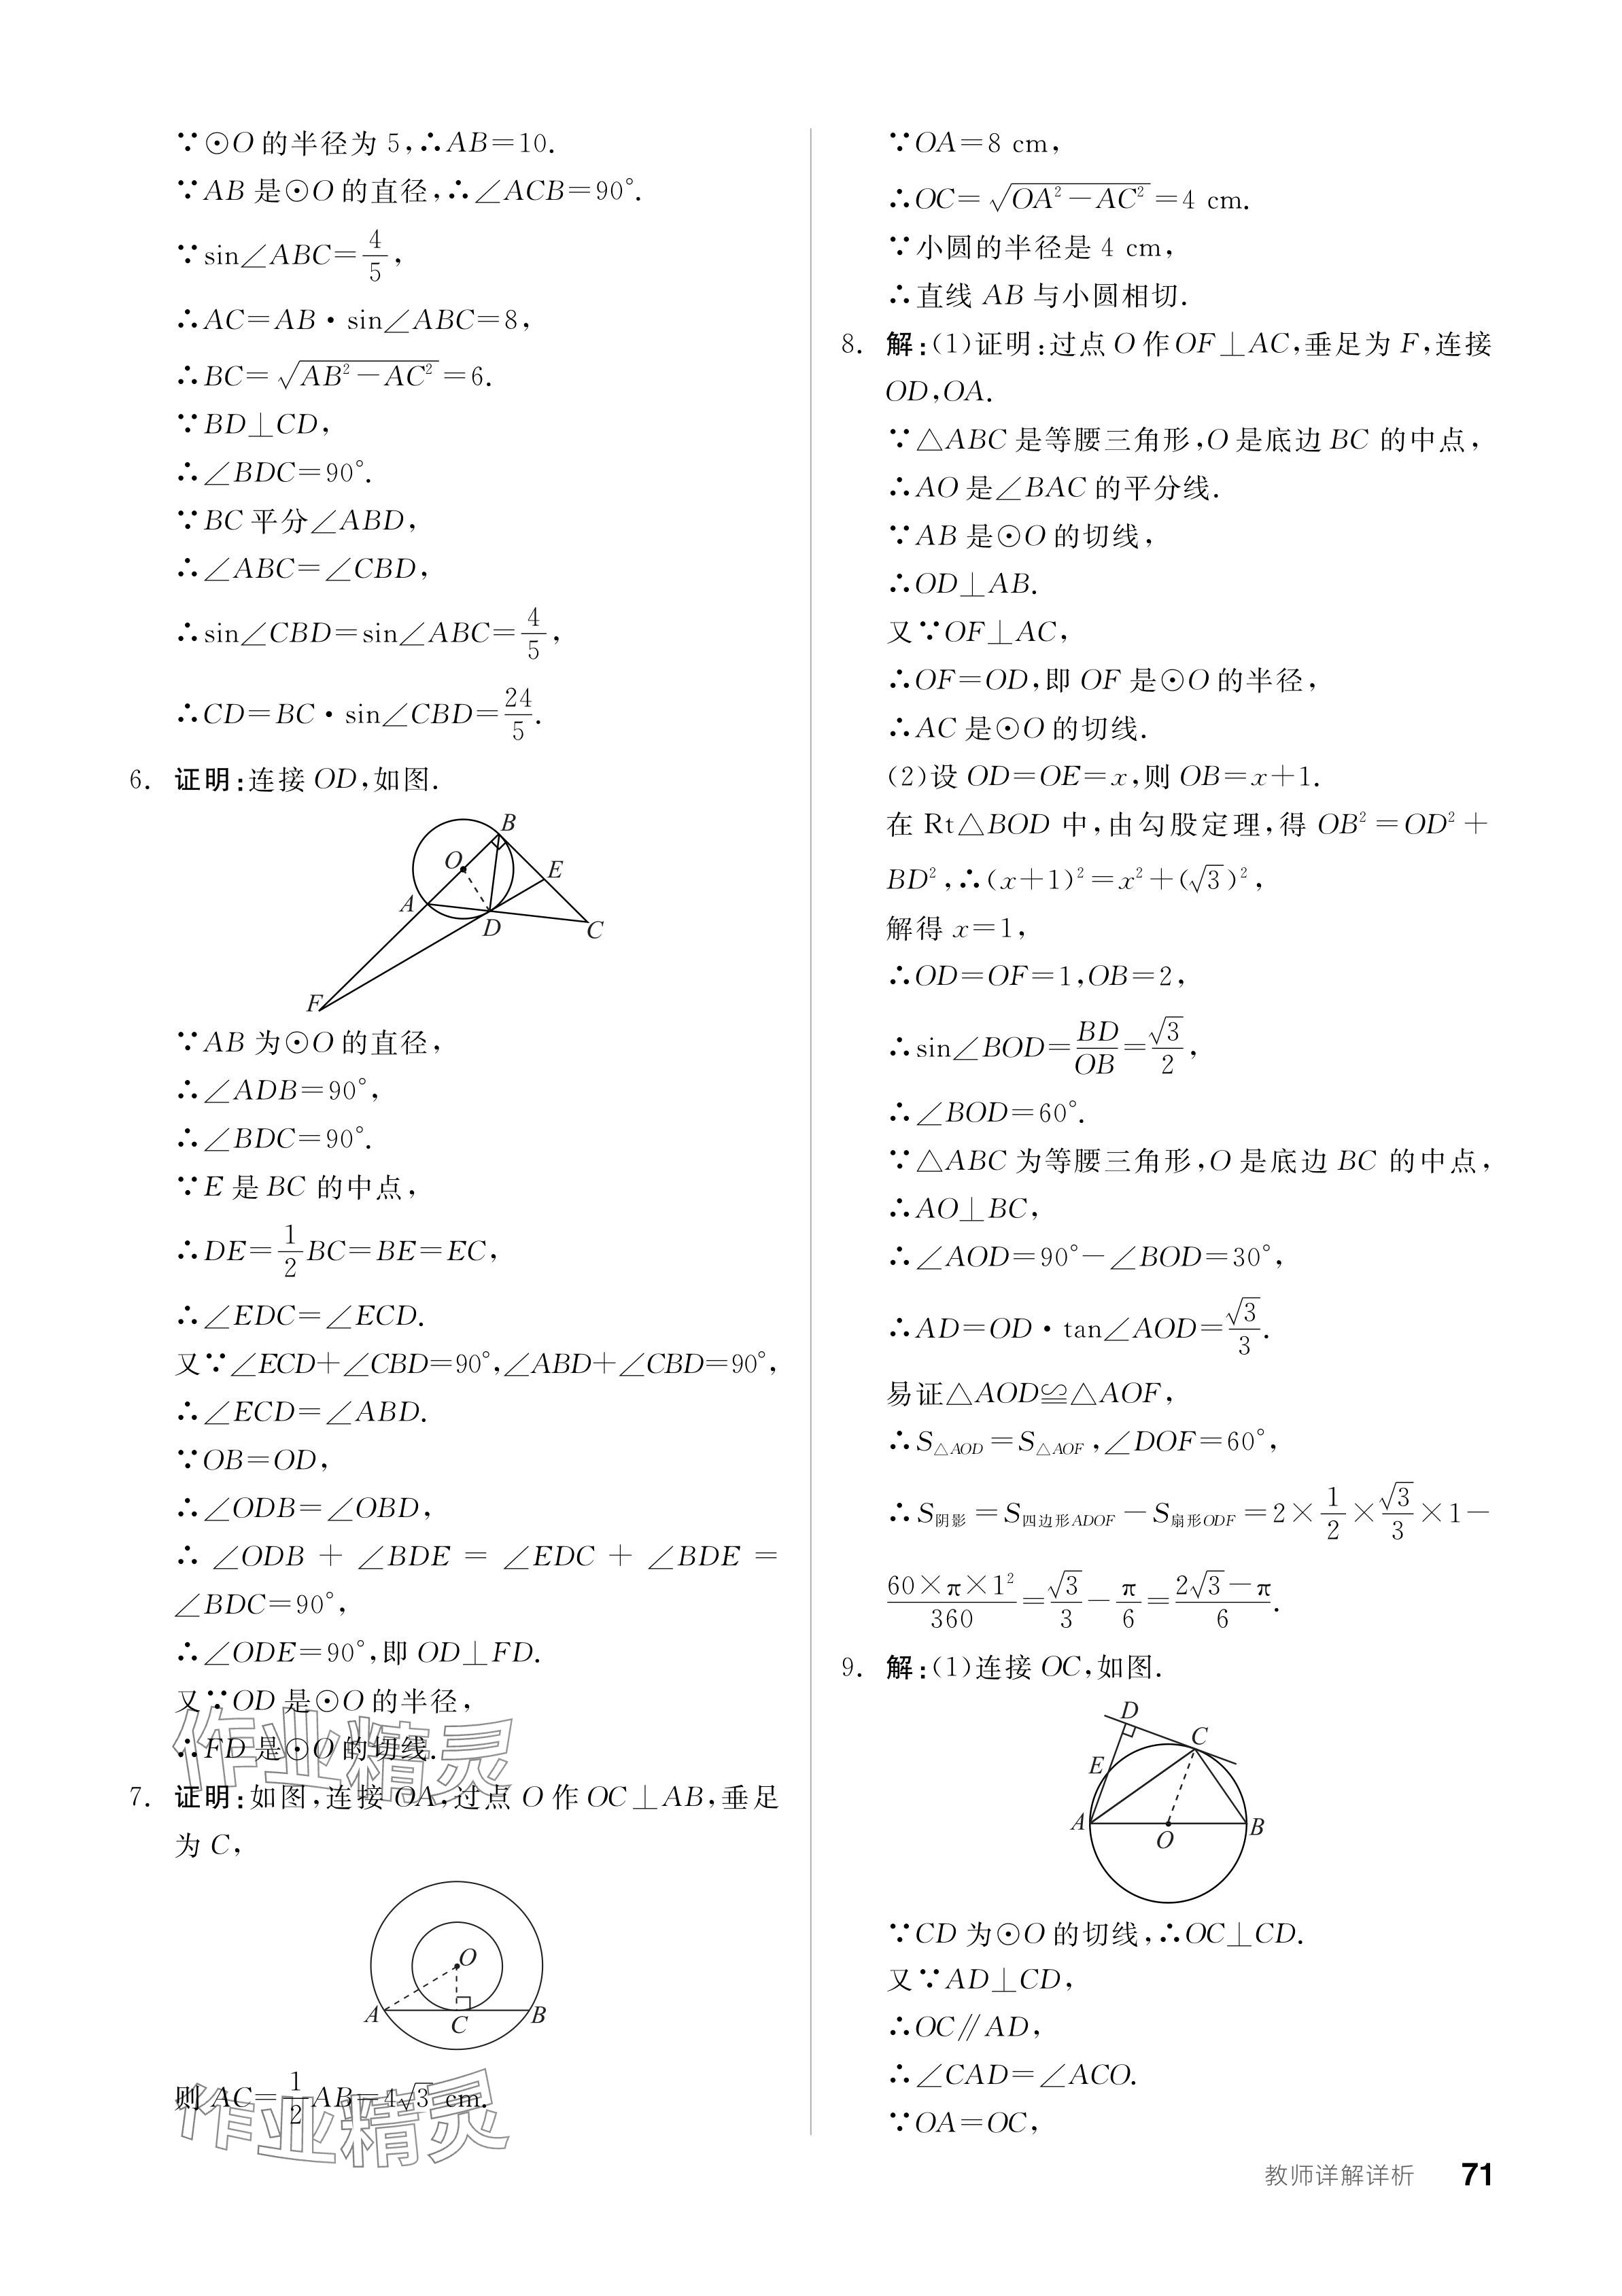 ∵⊙O的半径为5,∴AB=10.
∵AB是⊙O的直径,∴∠ACB=90°.
∵sin∠ABC=4/5,
∴AC=AB·sin∠ABC=8,
∴BC=√(AB²-AC²)=6.
∵BD⊥CD,
∴∠BDC=90°.
∵BC平分∠ABD,
∴∠ABC=∠CBD,
∴sin∠CBD=sin∠ABC=4/5,
∴CD=BC·sin∠CBD=24/5.
6. 证明:连接OD,如图.
B
O
E
A
D
C
F
∵AB为⊙O的直径,
∴∠ADB=90°,
∴∠BDC=90°.
∵E是BC的中点,
∴DE=1/2BC=BE=EC,
∴∠EDC=∠ECD.
又∵∠ECD+∠CBD=90°,∠ABD+∠CBD=90°,
∴∠ECD=∠ABD.
∵OB=OD,
∴∠ODB=∠OBD,
∴∠ODB+∠BDE=∠EDC+∠BDE=
∠BDC=90°,
∴∠ODE=90°,即OD⊥FD.
又∵OD是⊙O的半径,
∴FD是⊙O的切线.
作业精灵
7. 证明:如图,连接OA,过点O作OC⊥AB,垂足
为C,
O
A
C
B
则AC=1/2AB=4√3 cm.
作业精灵
∵OA=8 cm,
∴OC=√(OA²-AC²)=4 cm.
∵小圆的半径是4 cm,
∴直线AB与小圆相切.
8. 解:(1)证明:过点O作OF⊥AC,垂足为F,连接
OD,OA.
∵△ABC是等腰三角形,O是底边BC的中点,
∴AO是∠BAC的平分线.
∵AB是⊙O的切线,
∴OD⊥AB.
又∵OF⊥AC,
∴OF=OD,即OF是⊙O的半径,
∴AC是⊙O的切线.
(2)设OD=OE=x,则OB=x+1.
在Rt△BOD中,由勾股定理,得OB²=OD²+
BD²,∴(x+1)²=x²+(√3)²,
解得x=1,
∴OD=OF=1,OB=2,
∴sin∠BOD=BD/OB=√3/2,
∴∠BOD=60°.
∵△ABC为等腰三角形,O是底边BC的中点,
∴AO⊥BC,
∴∠AOD=90°-∠BOD=30°,
∴AD=OD·tan∠AOD=√3/3.
易证△AOD≌△AOF,
∴S△AOD=S△AOF,∠DOF=60°,
∴S阴影=S四边形ADOF-S扇形ODF=2×1/2×√3/3×1-
60×π×1²/360=√3/3-π/6=(2√3-π)/6.
9. 解:(1)连接OC,如图.
D
C
E
A
O
B
∵CD为⊙O的切线,∴OC⊥CD.
又∵AD⊥CD,
∴OC∥AD,
∴∠CAD=∠ACO.
∵OA=OC,
教师详解详析 71